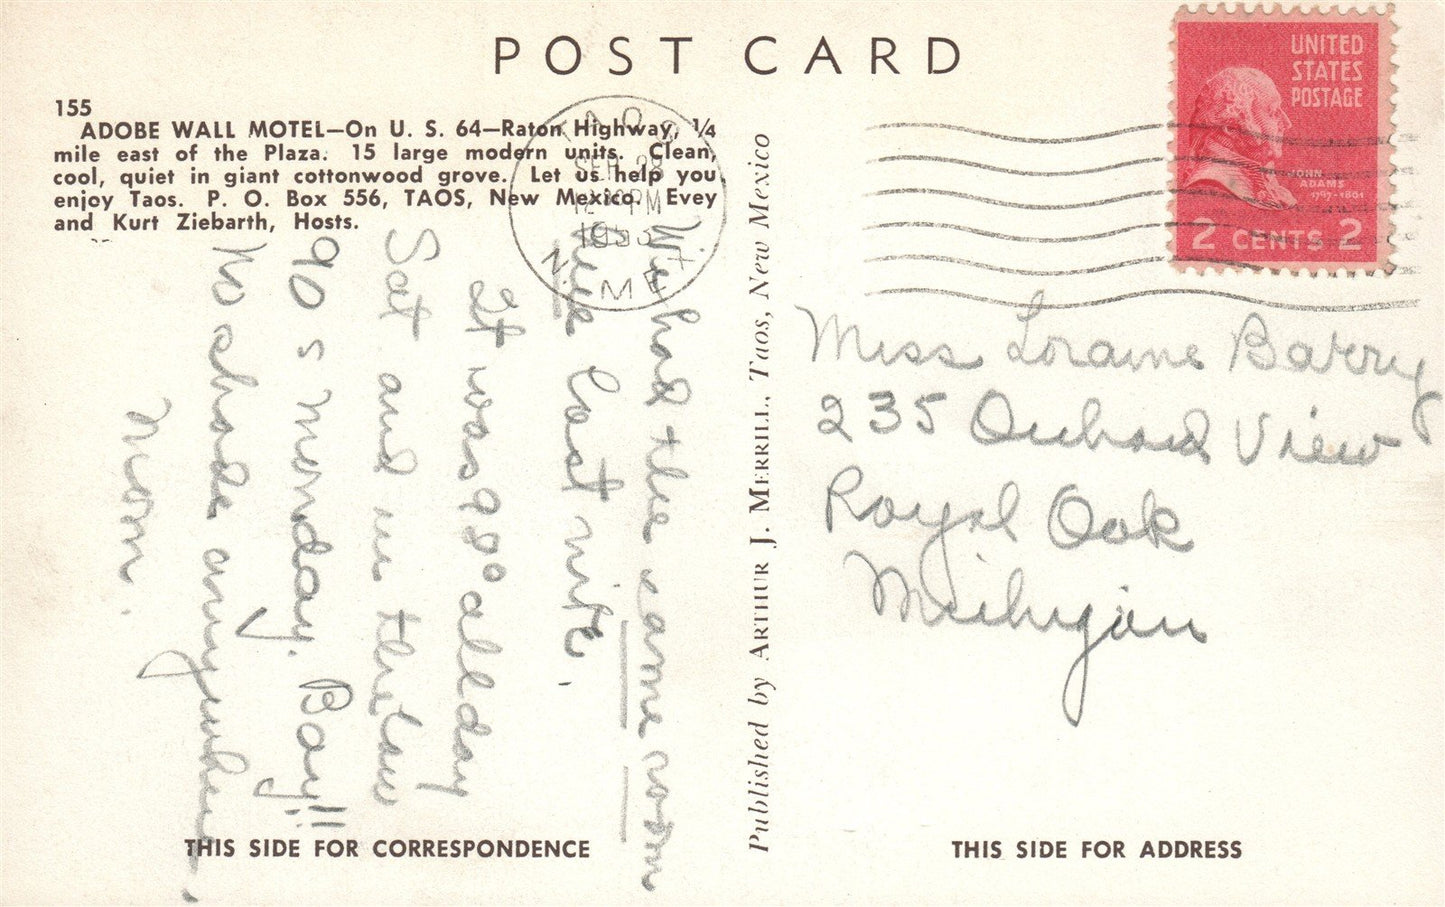 POST CARD
155
ADOBE WALL MOTEL—On U. S. 64—Raton Highway, ¼
mile east of the Plaza. 15 large modern units. Clean,
cool, quiet in giant cottonwood grove. Let us help you
enjoy Taos. P. O. Box 556, TAOS, New Mexico. Evey
and Kurt Ziebarth, Hosts.
We had the same room
here last nite.
It was 98° all day
Sat and in the low
90s Monday. Boy!!
No shade anywhere.
Mom.
THIS SIDE FOR CORRESPONDENCE
Published by ARTHUR J. MERRILL, Taos, New Mexico
TAOS
SEP 28
PM
1953
N. MEX.
UNITED
STATES
POSTAGE
JOHN
ADAMS
1797-1801
2 CENTS 2
Miss Loraine Barry
235 Orchard View
Royal Oak
Michigan
THIS SIDE FOR ADDRESS